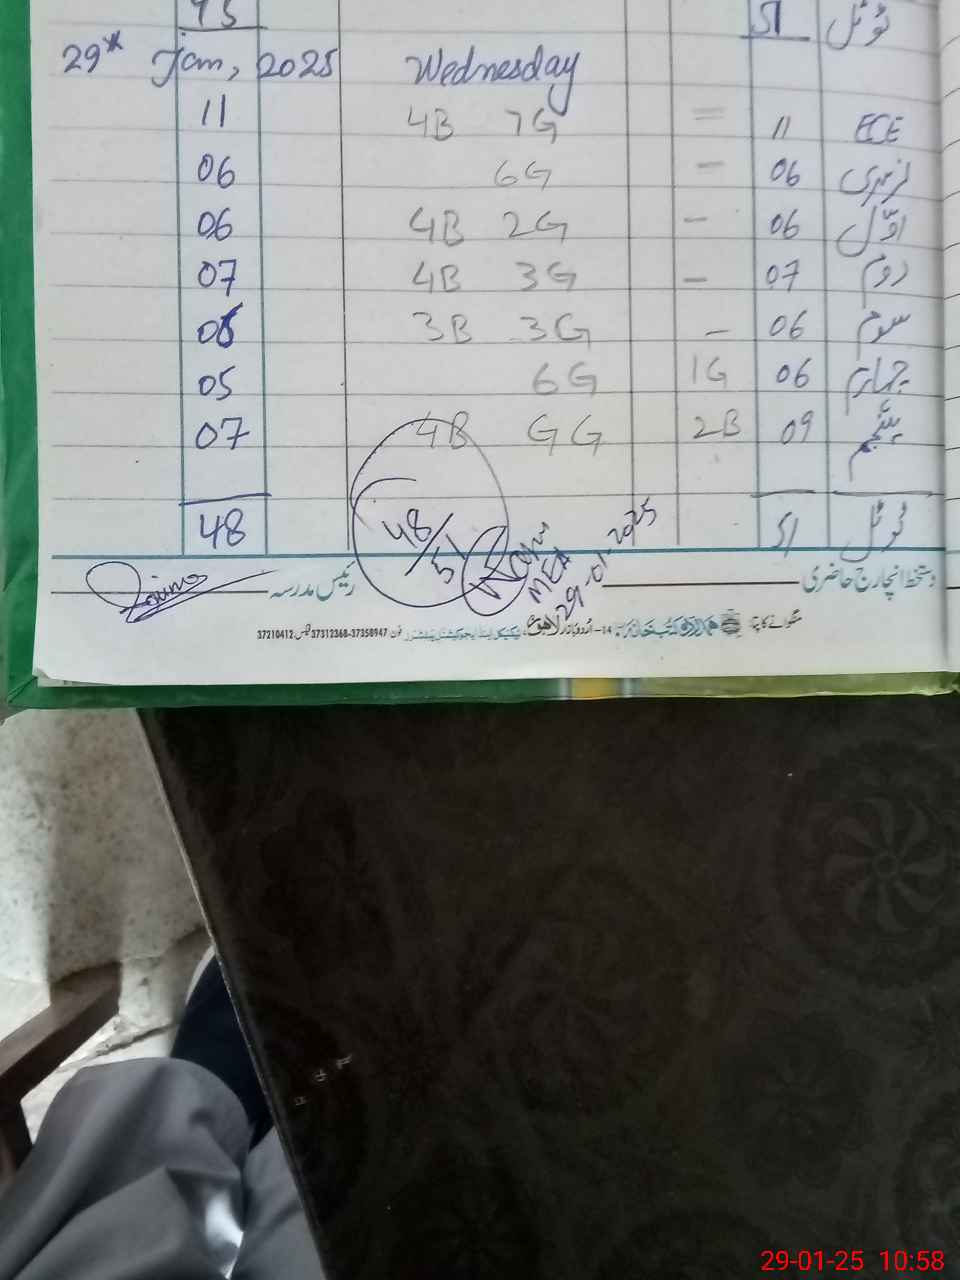 95 51 ٹوٹل
29th Jan, 2025 Wednesday
11 4B 7G = 11 ECE
06 6G - 06 نرسری
06 4B 2G - 06 اوّل
07 4B 3G - 07 دوم
06 3B 3G - 06 سوم
05 6G 1G 06 چہارم
07 4B GG 2B 09 پنجم
48 51 ٹوٹل
48/51
MEA
29-01-2025
دستخط انچارج حاضری رئیس مدرسہ
منگوانے کا پتہ: 14-اُردو بازار لاہور فون 37312368-37358947 فیکس 37210412
29-01-25 10:58